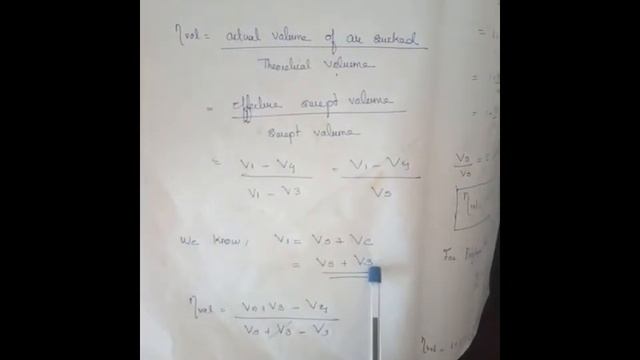 η vol = actual volume of air sucked
Theoretical volume
= Effective swept volume
swept volume
= V1 - V4 / V1 - V3 = V1 - V4 / Vs
We know, V1 = Vs + Vc
= Vs + V3
ηvol = Vs + V3 - V4
Vs + V3 - V3